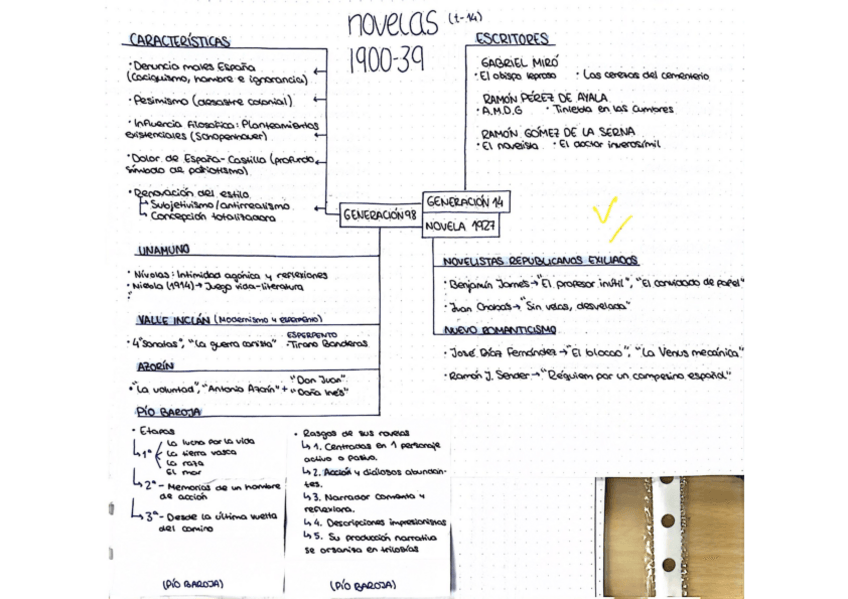 novelas (t-14)
1900-39
CARACTERÍSTICAS
· Denuncia males España
(caciquismo, hambre e ignorancia)
· Pesimismo (desastre colonial)
· Influencia filosófica: Planteamientos
existenciales (Schopenhauer)
· Dolor de España - Castilla (profundo
símbolo de patriotismo)
· Renovación del estilo
↳ Subjetivismo/antirrealismo
↳ Concepción totalizadora
ESCRITORES
GABRIEL MIRÓ
· El obispo leproso · Las cerezas del cementerio
RAMÓN PÉREZ DE AYALA
· A.M.D.G · Tinieblas en las cumbres
RAMÓN GÓMEZ DE LA SERNA
· El novelista · El doctor inverosímil
GENERACIÓN 98
GENERACIÓN 14
NOVELA 1927
UNAMUNO
· Nivolas: Intimidad agónica y reflexiones
· Niebla (1914) → Juego vida-literatura
VALLE INCLÁN (Modernismo y esperpento)
· 4 "sonatas", "La guerra carlista"
ESPERPENTO
· Tirano Banderas
AZORÍN
· "La voluntad", "Antonio Azorín" + "Don Juan"
"Doña Inés"
PÍO BAROJA
· Etapas
↳ 1ª
La lucha por la vida
La tierra vasca
La raza
El mar
↳ 2ª - Memorias de un hombre
de acción
↳ 3ª - Desde la última vuelta
del camino
(PÍO BAROJA)
· Rasgos de sus novelas
↳ 1. Centradas en 1 personaje
activo o pasivo.
↳ 2. Acción y diálogos abundan-
tes.
↳ 3. Narrador comenta y
reflexiona.
↳ 4. Descripciones impresionistas
↳ 5. Su producción narrativa
se organiza en trilogías
(PÍO BAROJA)
NOVELISTAS REPUBLICANOS EXILIADOS
· Benjamín Jarnés → "El profesor inútil", "El convidado de papel"
· Juan Chabás → "Sin velas, desvelada"
NUEVO ROMANTICISMO
· José Díaz Fernández → "El blocao", "La Venus mecánica"
· Ramón J. Sender → "Réquiem por un campesino español"